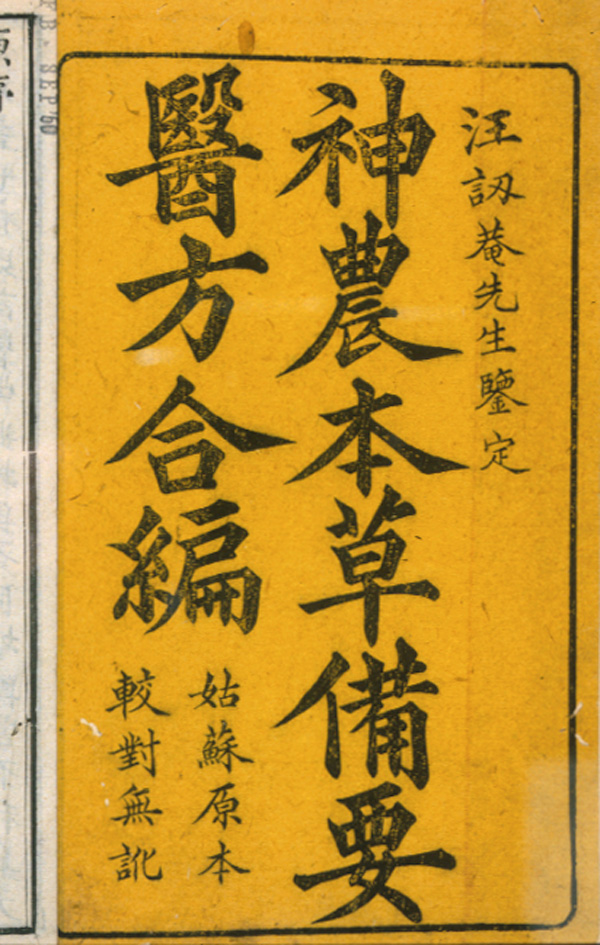 汪訒菴先生鑒定
神農本草備要
醫方合編
姑蘇原本
較對無訛
SEP 50